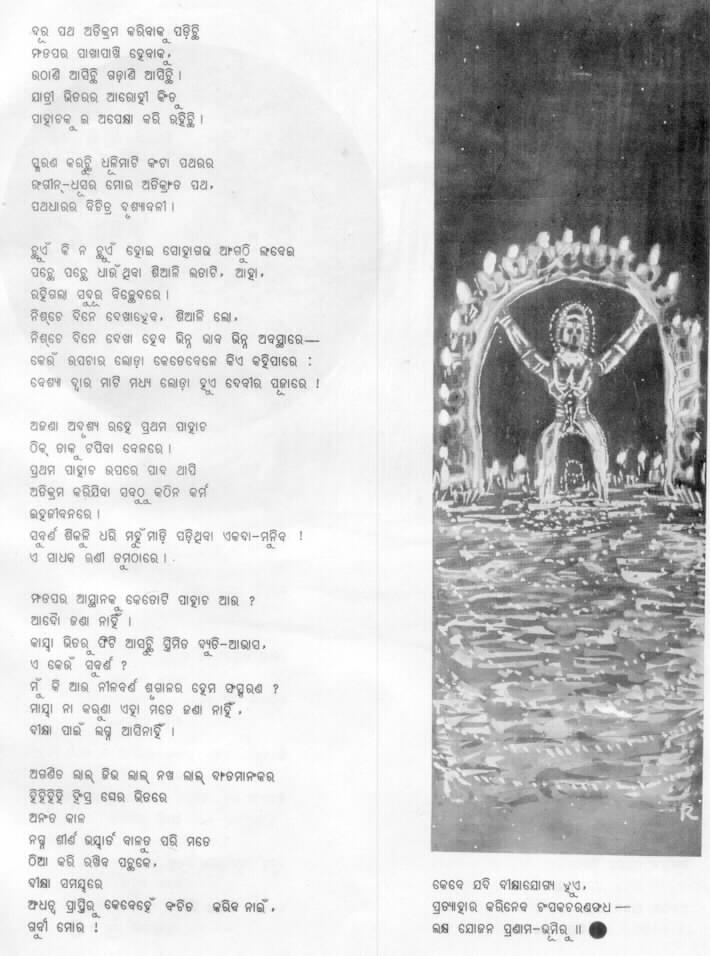 ଦୂର ପଥ ଅତିକ୍ରମ କରିବାକୁ ପଡ଼ିଚ୍ଛି
ମଡପର ପାଖାପାଖି ହେବାକୁ,
ଉଠାଣି ଆସିଚ୍ଛି ଗଡ଼ାଣି ଆସିଚ୍ଛି ।
ଯାତ୍ରୀ ଭିତରର ଆରୋହୀ କିଂତୁ
ପାହାଚକୁ ଇ ଅପେକ୍ଷା କରି ରହିଚ୍ଛି ।
ସ୍ମରଣ କରୁଚ୍ଛି ଧୂଳିମାଟି କଂଟା ପଥରର
ରଂଗୀନ୍-ଧୂସର ମୋର ଅତିକ୍ରାଂତ ପଥ,
ପଥଧାରର ବିଚିତ୍ର ଦୃଶ୍ୟାବଳୀ ।
ଚ୍ଛୁଏଁ କି ନ ଚ୍ଛୁଏଁ ହୋଇ ସୋହାଗର ଆଂଗୁଠି ଲଂବେଇ
ପଚ୍ଛେ ପଚ୍ଛେ ଧାଉଁଥିବା ଶିଆଳି ଲତାଟି, ଆହା,
ରହିଗଲା ସୁଦୂର ବିଚ୍ଛେଦରେ ।
ନିଶ୍ଚେ ଦିନେ ଦେଖାହେବ, ଶିଆଳି ଲୋ,
ନିଶ୍ଚେ ଦିନେ ଦେଖା ହେବ ଭିନ୍ନ ଭାବ ଭିନ୍ନ ଅବସ୍ଥାରେ—
କେଉଁ ଉପଚାର ଲୋଡ଼ା କେତେବେଳେ କିଏ କହିପାରେ :
ବେଶ୍ୟା ଦ୍ଵାର ମାଟି ମଧ୍ୟ ଲୋଡ଼ା ହୁଏ ଦେବୀର ପୂଜାରେ !
ଅଜଣା ଅଦୃଶ୍ୟ ରହେ ପ୍ରଥମ ପାହାଚ
ଠିକ୍ ତାକୁ ଟପିବା ବେଳରେ ।
ପ୍ରଥମ ପାହାଚ ଉପରେ ପାଦ ଥାପି
ଅତିକ୍ରମ କରିଯିବା ସବୁଠୁ କଠିନ କର୍ମ
ଇହଜୀବନରେ ।
ସୁବର୍ଣ ଶିକୁଳି ଧରି ମୁହଁ ମାଡ଼ି ପଡ଼ିଥିବା ଏକଦା-ମୁନିବ !
ଏ ସାଧକ ଋଣୀ ତୁମଠାରେ ।
ମଡପର ଆସ୍ଥାନକୁ କେତୋଟି ପାହାଚ ଆଉ ?
ଆଦୌ ଜଣା ନାହିଁ ।
କାୟା ଭିତରୁ ଫିଟି ଆସୁଚ୍ଛି ସ୍ତିମିତ ଦ୍ୟୁତି-ଆଭାସ,
ଏ କେଉଁ ସୁବର୍ଣ ?
ମୁଁ କି ଆଉ ନୀଳବର୍ଣ ଶୃଗାଳର ହେମ ସଂସ୍କରଣ ?
ମାୟା ନା କରୁଣା ଏହା ମତେ ଜଣା ନାହିଁ,
ଦୀକ୍ଷା ପାଇଁ ଲଗ୍ନ ଆସିନାହିଁ ।
ଅଗଣିତ ଲାଲ୍ ଜିଭ ଲାଲ୍ ନଖ ଲାଲ୍ ଦାଂତମାନଂକର
ହିହିହିହିହି ହିଂସ୍ର ସେର ଭିତରେ
ଅନଂତ କାଳ
ନଗ୍ନ ଶୀର୍ଣ ଭୟାର୍ତ ବାଳୁତ ପରି ମତେ
ଠିଆ କରି ରଖିବ ପଚ୍ଛକେ,
ଦୀକ୍ଷା ସମୟରେ
ଅଂଧତ୍ଵ ପ୍ରାପ୍ତିରୁ କେବେହେଁ ବଂଚିତ କରିବ ନାଇଁ,
ଗୁର୍ବୀ ମୋର !
କେବେ ଯଦି ଦୀକ୍ଷାଯୋଗ୍ୟ ହୁଏ,
ପ୍ରତ୍ୟାହାର କରିନେବ ଚଂପକଚରଣଗଂଧ—
ଲକ୍ଷ ଯୋଜନ ପ୍ରଣାମ-ଭୂମିରୁ ॥
R